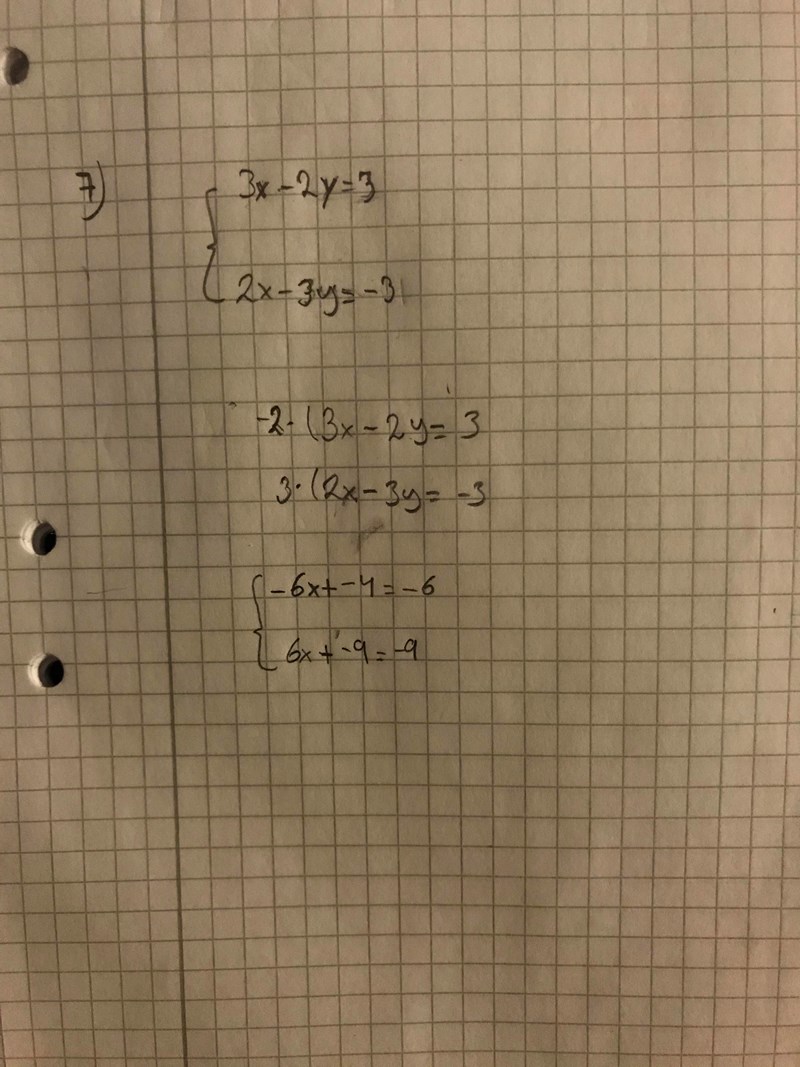 7)
3x-2y=3
2x-3y=-3
-2·(3x-2y= 3
3·(2x-3y= -3
-6x+-4=-6
6x+-9=-9